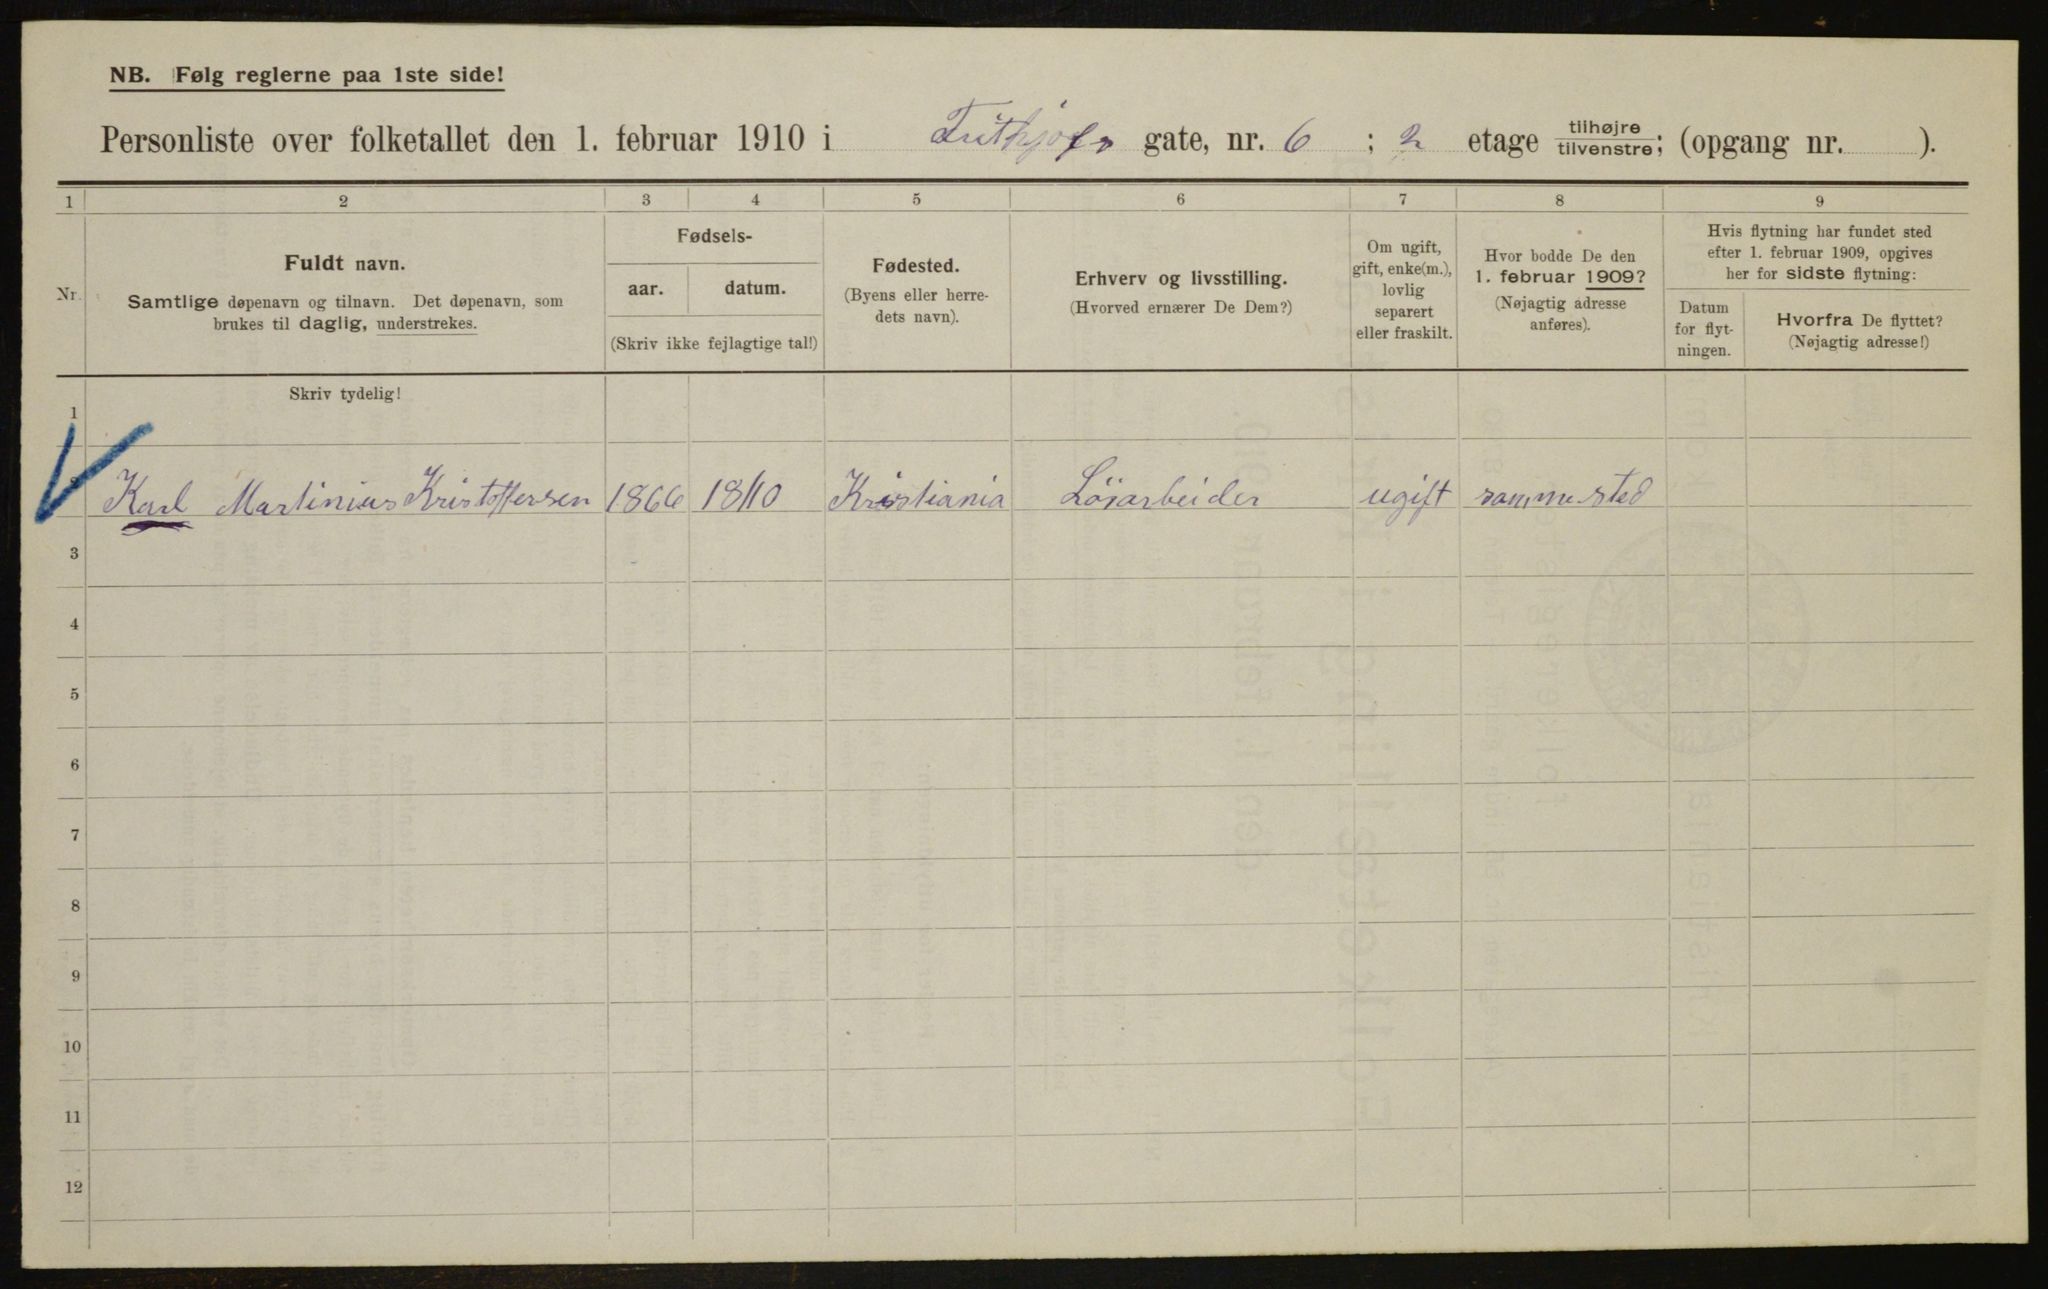 NB. Følg reglerne paa 1ste side!
Personliste over folketallet den 1. februar 1910 i Frithjofs gate, nr. 6 ; 2 etage tilhøjre tilvenstre; (opgang nr. ).
1 2 3 4 5 6 7 8 9
Nr.
Fuldt navn.
Samtlige døpenavn og tilnavn. Det døpenavn, som
brukes til daglig, understrekes.
Fødsels-
aar. datum.
(Skriv ikke fejlagtige tal!)
Fødested.
(Byens eller herre-
dets navn).
Erhverv og livsstilling.
(Hvorved ernærer De Dem?)
Om ugift,
gift, enke(m.),
lovlig
separert
eller fraskilt.
Hvor bodde De den
1. februar 1909?
(Nøjagtig adresse
anføres).
Hvis flytning har fundet sted
efter 1. februar 1909, opgives
her for sidste flytning:
Datum
for flyt-
ningen.
Hvorfra De flyttet?
(Nøjagtig adresse!)
Skriv tydelig!
1
2 Karl Martinius Kristoffersen 1866 18/10 Kristiania Løsarbeider ugift sammested
3
4
5
6
7
8
9
10
11
12